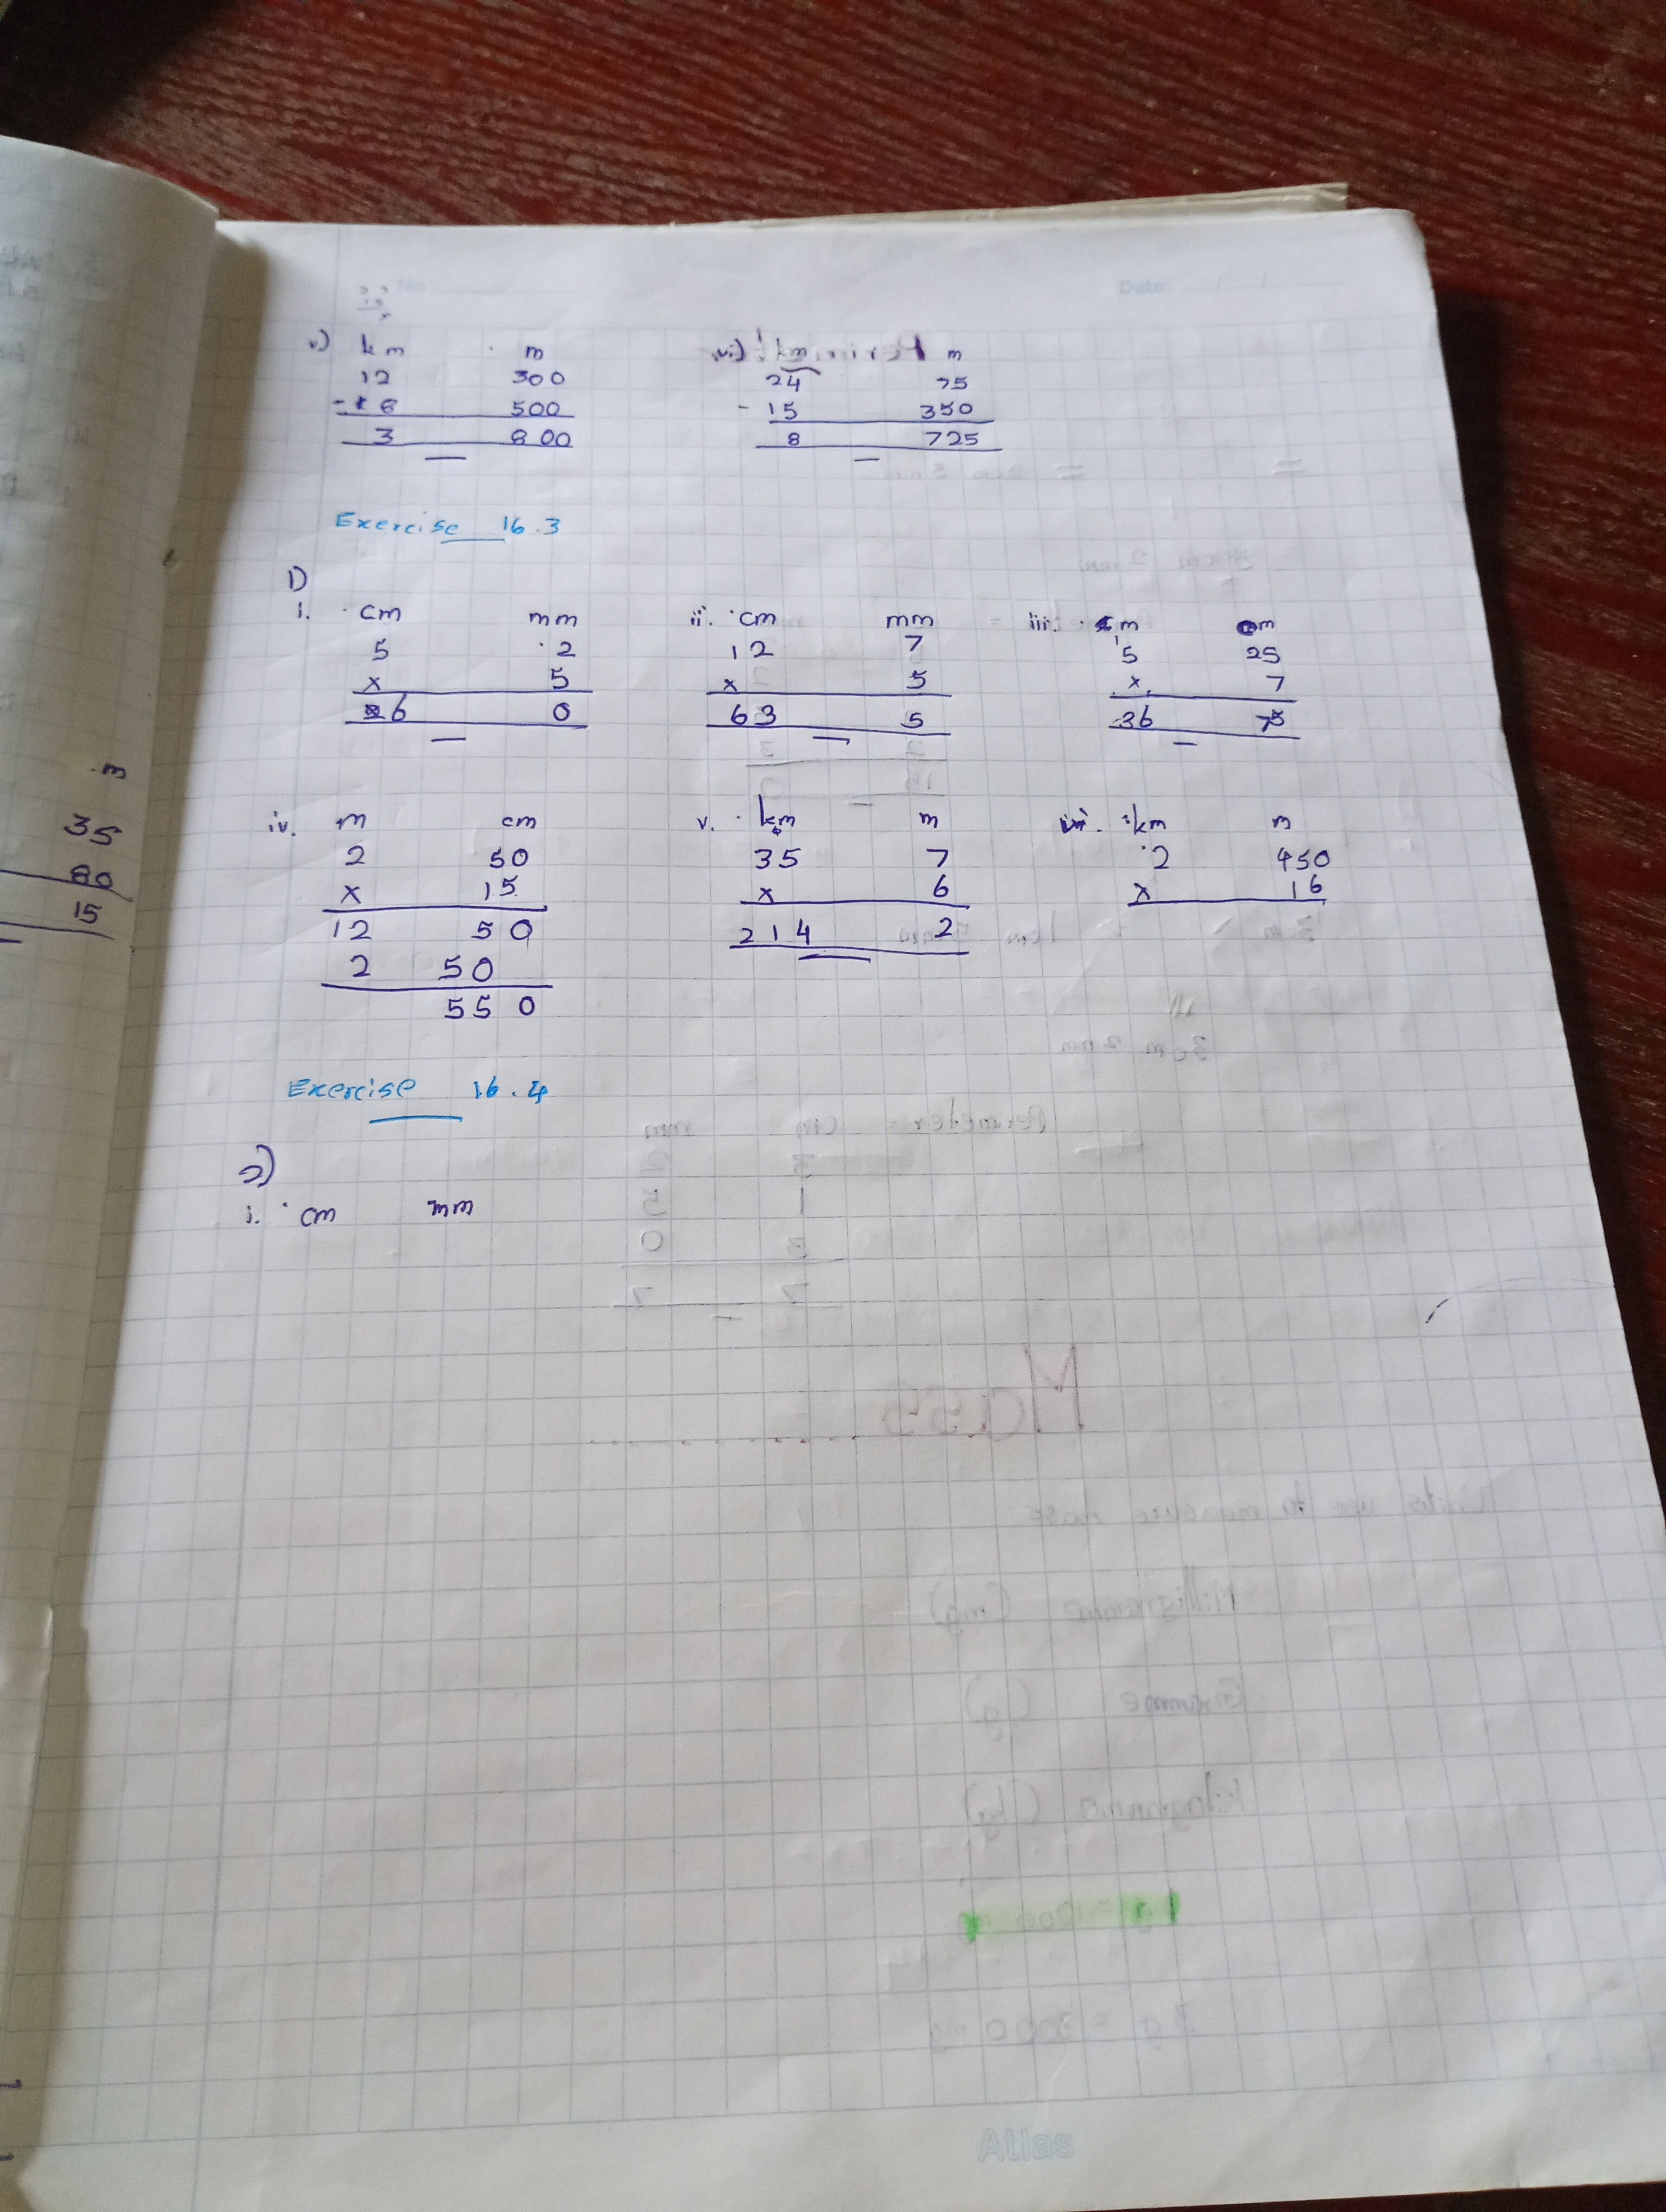 No Date
v) km m vi) km m
12 300 24 75
- 8 500 - 15 350
3 800 8 725
Exercise 16.3
1)
i. cm mm ii. cm mm iii. m cm
5 2 12 7 5 25
x 5 x 5 x 7
26 0 63 5 36 75
3
35
80
15
iv. m cm v. km m vi. km m
2 50 35 7 2 450
x 15 x 6 x 16
12 50 214 2
2 50
550
Exercise 16.4
2)
i. cm mm
Atlas